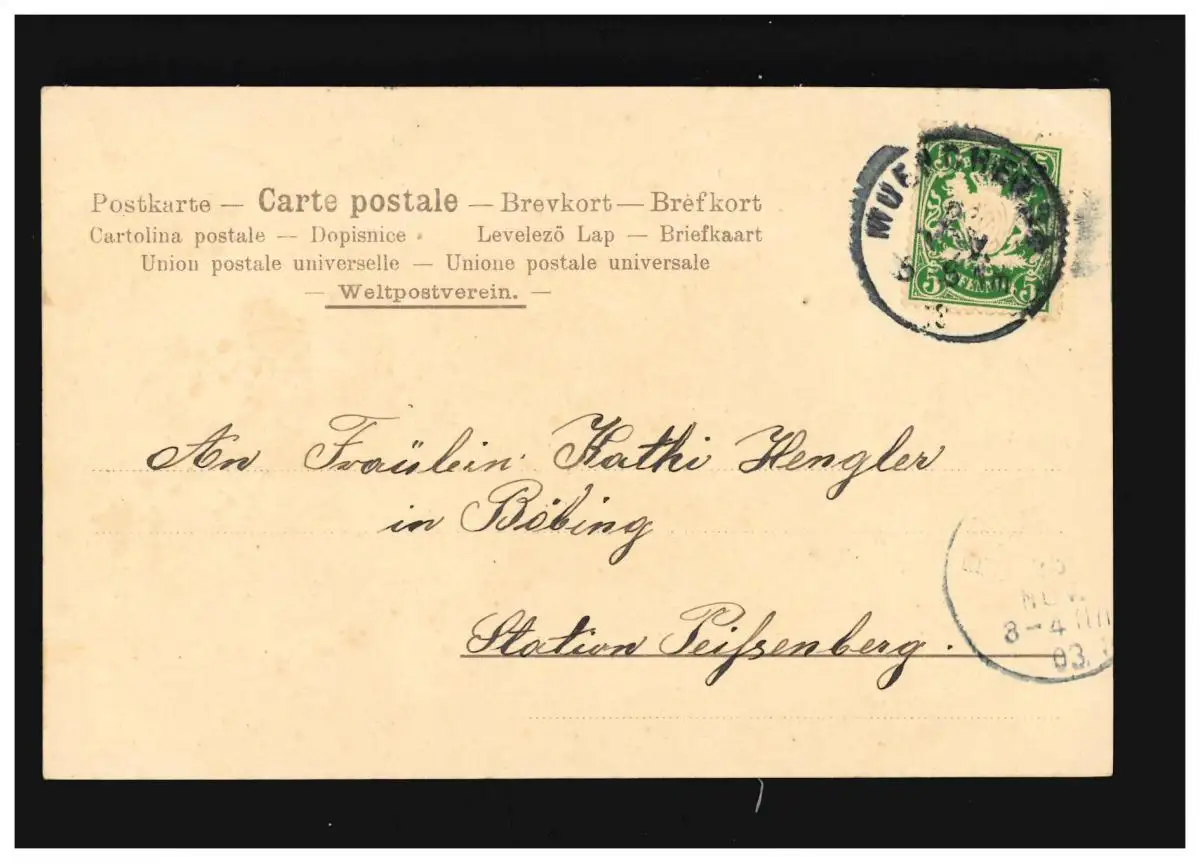 Postkarte — Carte postale — Brevkort — Brèfkort
Cartolina postale — Dopisnice · Levelezö Lap — Briefkaart
Union postale universelle — Unione postale universale
— Weltpostverein. —
MUENCHEN
5 5
PFENNIG
5 5
An Fräulein Kathi Hengler
in Böbing
Station Peißenberg.
NOV.
3-4
03.